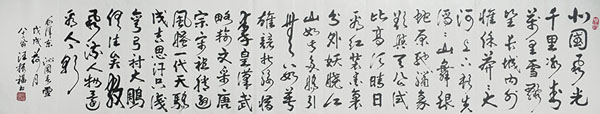 北國風光
千里冰封
萬里雪飄
望長城內外
惟餘莽莽大
河上下頓失
滔滔山舞銀
蛇原馳蠟象
欲與天公試
比高須晴日
看紅裝素裹
分外妖嬈江
山如此多嬌引
無數英
雄競折腰惜
秦皇漢武
略輸文采唐
宗宋祖稍遜
風騷一代天驕
成吉思汗只識
彎弓射大鵰
俱往矣數
風流人物還
看今朝
毛澤東 沁園春雪
戊戌 月